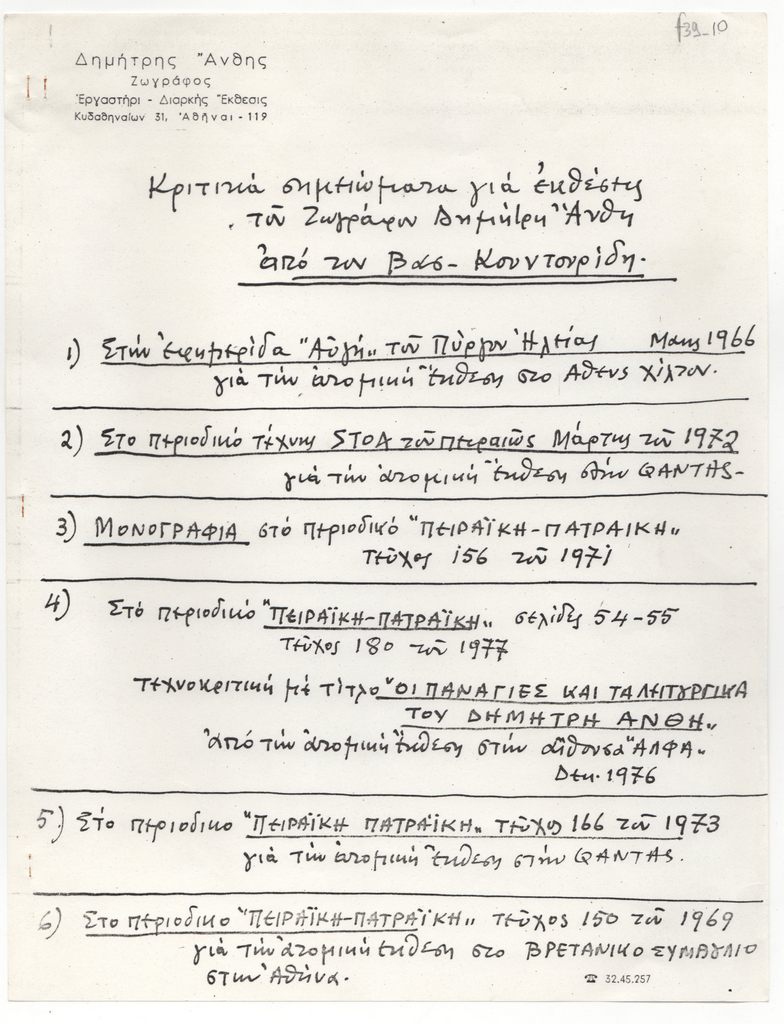 f39-10
Δημήτρης Ἄνθης
Ζωγράφος
Ἐργαστήρι - Διαρκής Ἔκθεσις
Κυδαθηναίων 31, Ἀθῆναι - 119
Κριτικά σημειώματα γιά ἐκθέσεις
τοῦ Ζωγράφου Δημήτρη Ἄνθη
ἀπό τον Βασ- Κουντουρίδη.
1) Στήν ἐφημερίδα "Αὐγή" τοῦ Πύργου Ἠλείας 1966
γιά τήν ἀτομική ἔκθεση στο Αθενς Χίλτον.
2) Στο περιοδικό τέχνης ΣΤΟΑ τοῦ Πειραιῶς Μάρτης τοῦ 1972
γιά τήν ἀτομική ἔκθεση στήν QANTAS-
3) ΜΟΝΟΓΡΑΦΙΑ στό περιοδικό "ΠΕΙΡΑΪΚΗ-ΠΑΤΡΑΙΚΗ"
τεῦχος 156 τοῦ 1971
4) Στό περιοδικό "ΠΕΙΡΑΪΚΗ-ΠΑΤΡΑΪΚΗ" σελίδες 54-55
τεῦχος 180 τοῦ 1977
τεχνοκριτική μέ τίτλο "ΟΙ ΠΑΝΑΓΙΕΣ ΚΑΙ ΤΑ ΛΕΙΤΟΥΡΓΙΚΑ
ΤΟΥ ΔΗΜΗΤΡΗ ΑΝΘΗ"
ἀπό τήν ἀτομική ἔκθεση στήν αἴθουσα "ΑΛΦΑ"
Δεκ. 1976
5) Στό περιοδικο "ΠΕΙΡΑΪΚΗ ΠΑΤΡΑΪΚΗ" τεῦχος 166 τοῦ 1973
γιά τήν ἀτομική ἔκθεση στήν QANTAS.
6) Στο περιοδικο "ΠΕΙΡΑΪΚΗ-ΠΑΤΡΑΪΚΗ" τεῦχος 150 τοῦ 1969
γιά τήν ἀτομική ἔκθεση στο ΒΡΕΤΑΝΙΚΟ ΣΥΜΒΟΥΛΙΟ
στην Ἀθήνα.
☎ 32.45.257